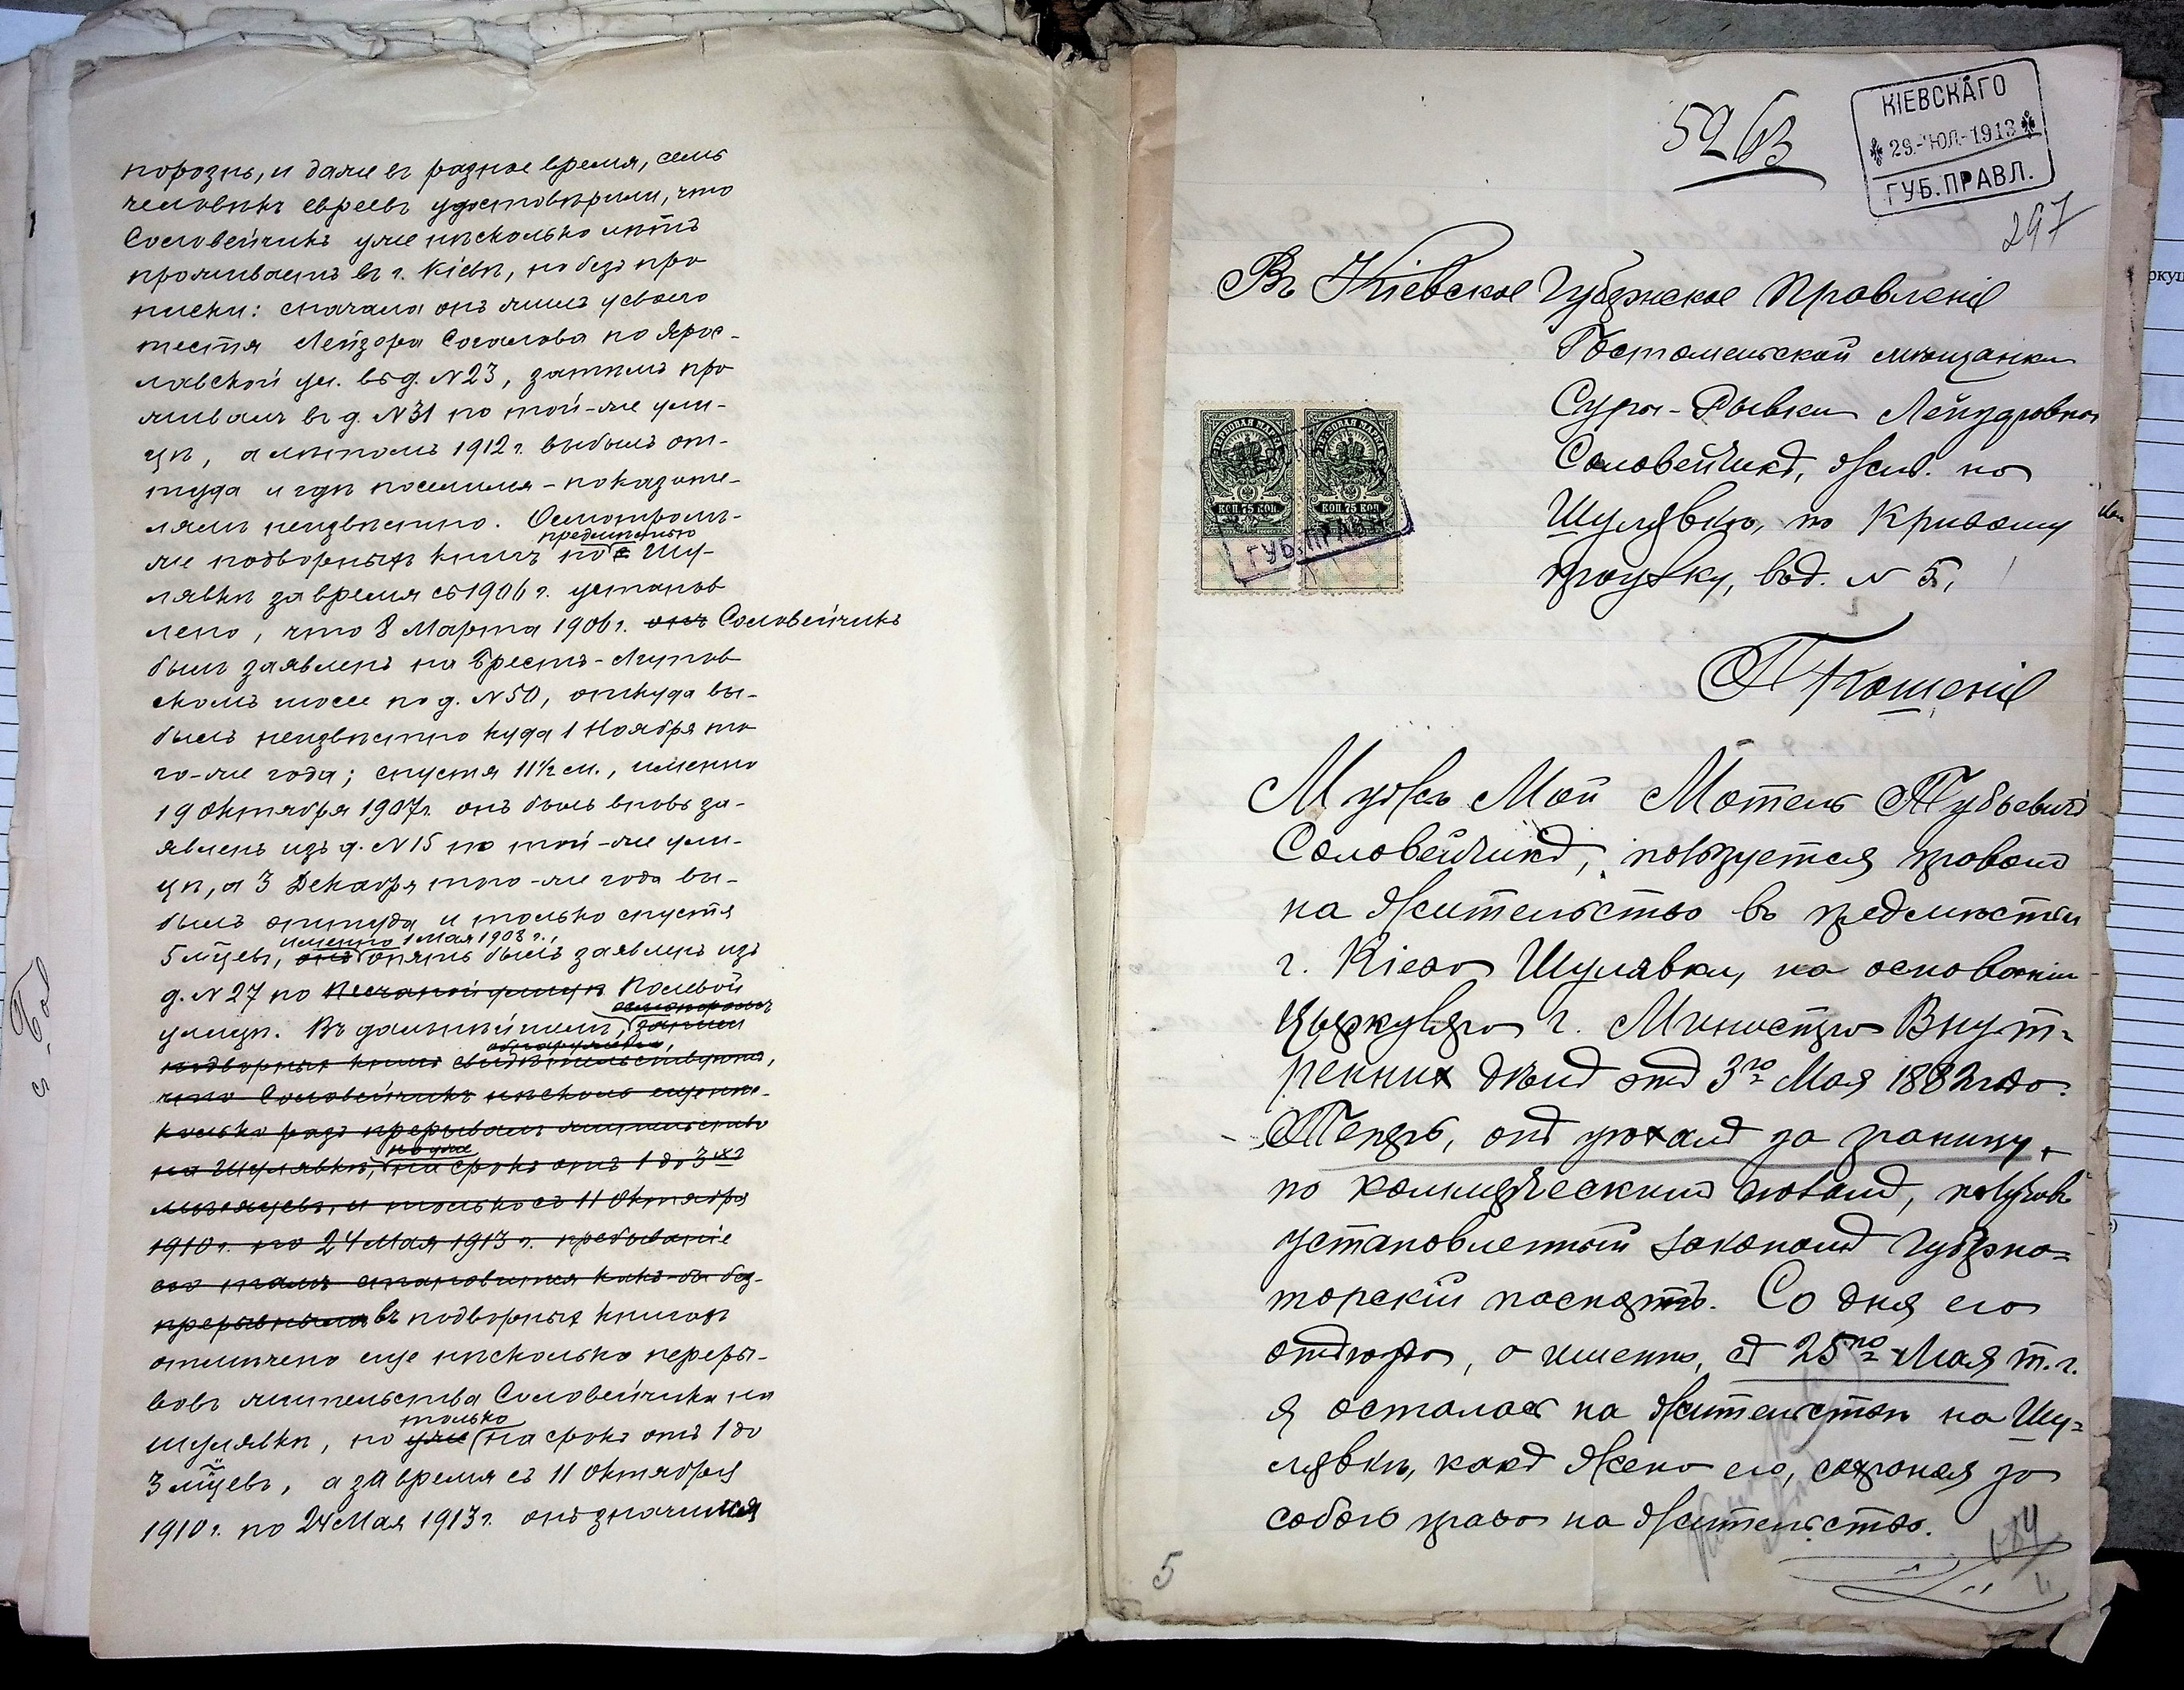 порознь, и даже въ разное время, семь
человѣкъ евреевъ удостовѣрили, что
Соловейчикъ уже нѣсколько лѣтъ
проживаетъ въ г. Кіевѣ, но безъ про
писки: сначала онъ жилъ у своего
тестя Лейзора Согалова по Яро-
славской ул. въ д. №23, затѣмъ про
живалъ въ д. №31 по той-же ули-
цѣ, а лѣтомъ 1912 г. выбылъ от-
туда и гдѣ поселился - показате-
лямъ неизвѣстно. Осмотромъ-
предмѣстью
же подворныхъ книгъ по Шу-
лявкѣ за время съ 1906 г. установ
лено, что 8 Марта 1906 г. онъ Соловейчикъ
былъ заявленъ на Брестъ-Литов
скомъ шоссе по д. №50, откуда вы-
былъ неизвѣстно куда 1 Ноября то
го-же года; спустя 11½ м., именно
19 Октября 1907 г. онъ былъ вновь за-
явленъ изъ д. №15 по той-же ули-
цѣ, а 3 Декабря того-же года вы-
былъ оттуда и только спустя
именно 1 Мая 1908 г.,
5 м͠цевъ, онъ опять былъ заявленъ изъ
д. №27 по Песчаной улицѣ Полевой
осмотромъ
улицѣ. Въ дальнѣйшемъ, записи
обнаружено,
подворныхъ книгъ свидѣтельствуютъ,
что Соловейчикъ нѣсколь еще нѣс-
колько разъ прерывалъ жительство
но уже
на Шулявкѣ, на срокъ отъ 1 до 3хъ
мѣсяцевъ, и только съ 11 Октября
1910 г. по 24 Мая 1913 г. пребываніе
его тамъ становится какъ-бы без-
прерывнымъ въ подворныхъ книгахъ
отмѣчено еще нѣсколько переры-
вовъ жительства Соловейчика на
только
Шулявкѣ, но уже на срокъ отъ 1 до
3 м͠цевъ, а за время съ 11 Октября
1910 г. по 24 Мая 1913 г. онъ значился
КІЕВСКАГО
29.-ІЮЛ.-1913
ГУБ. ПРАВЛ.
297
Въ Кіевское Губернское Правленіе
Гостомельской мѣщанки
Суры-Рывки Лейзоровны
Соловейчикъ, жив. на
Шулявкѣ, по Кривому
проулку, въ д. № 5,
ГЕРБОВАЯ МАРКА
ГЕРБОВАЯ МАРКА
КОП. 75 КОП.
КОП. 75 КОП.
ГУБ. ПРАВЛ.
Прошеніе
Мужъ Мой Мотель Тубьевичъ
Соловейчикъ, пользуется правомъ
на жительство въ предмѣстьи
г. Кіева Шулявки, на основаніи
Циркуляра г. Министра Внут-
реннихъ дѣлъ отъ 3го Мая 1882 года.
Теперь, онъ уѣхалъ за границу,
по коммерческимъ дѣламъ, получивъ
установленный закономъ Губерна-
торскій паспортъ. Со дня его
отъѣзда, а именно, съ 25го Мая т. г.
я осталась на жительствѣ на Шу-
лявкѣ, какъ жена его, сохраняя за
собою право на жительство.
5